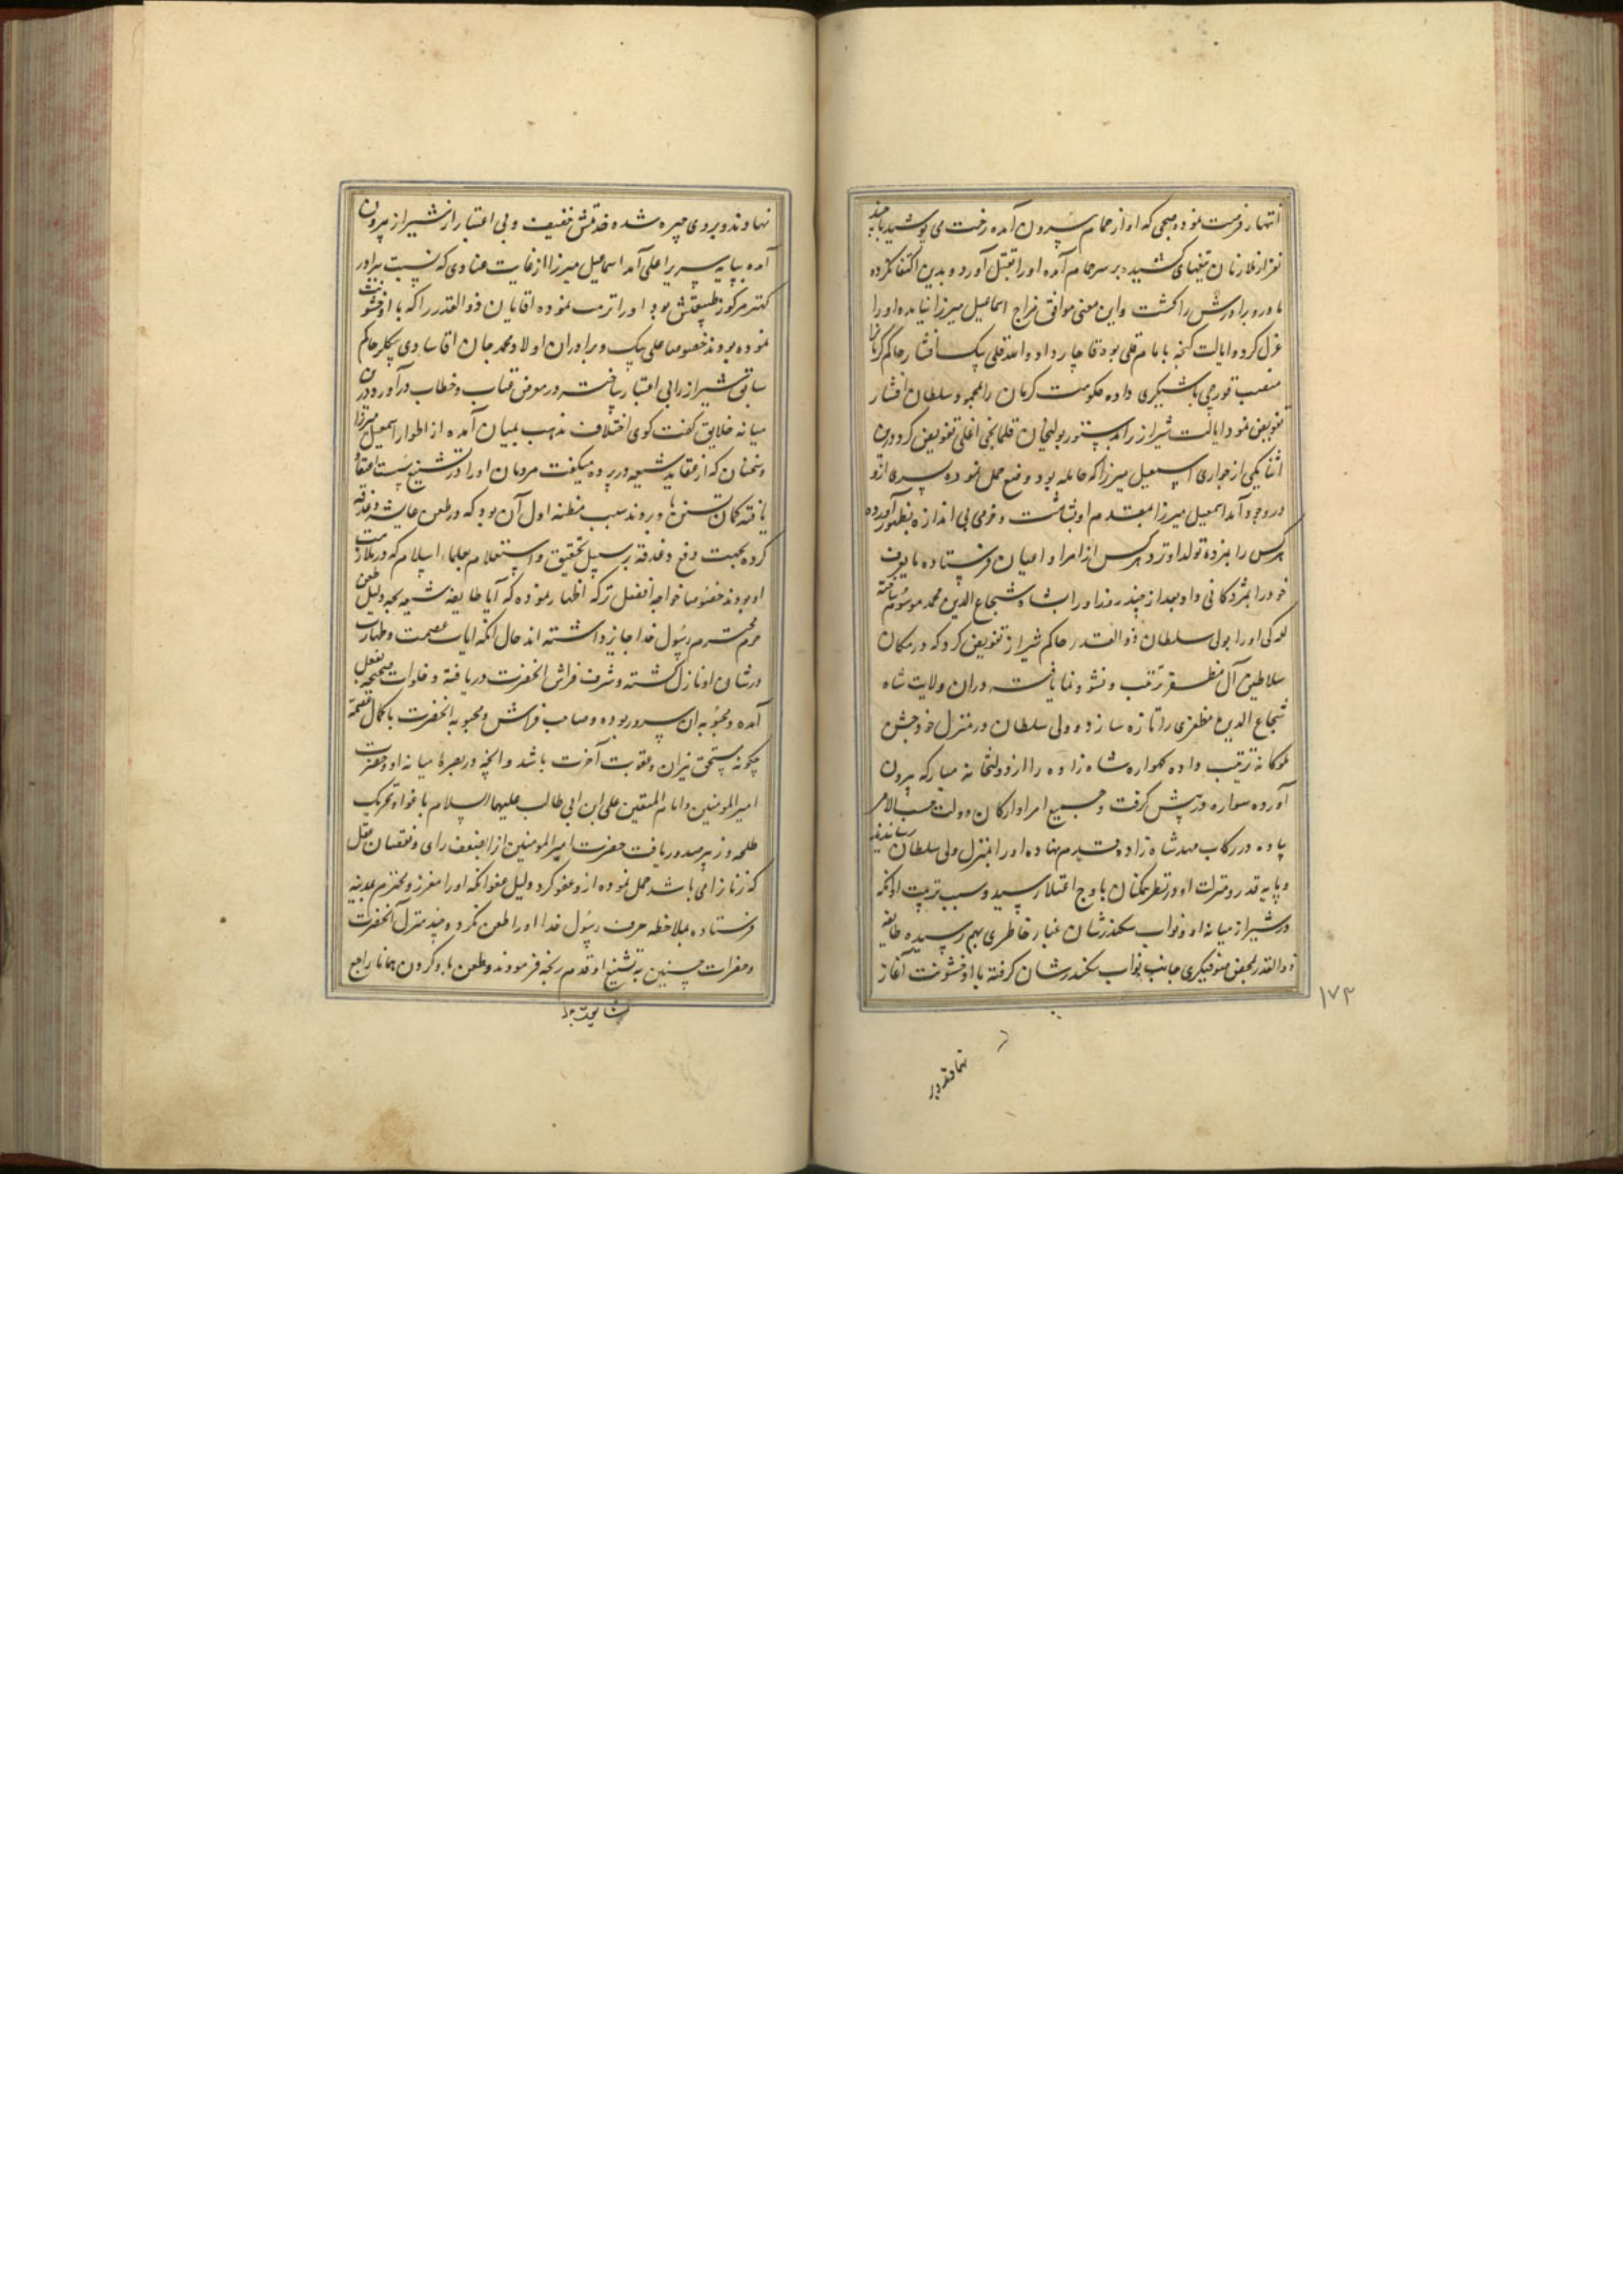 انتهار فرصت نموده صبحی که او از حمام بیرون آمده رخت می پوشید با چند
نفر از ملازمان تیغهای کشیده بر سر حمام آمده او را بقتل آورد و بدین اکتفا نکرده
مادر و برادرش را کشت و این معنی موافق مزاج اسماعیل میرزا نیامده او را
عزل کرده ایالت کنجه با بامام قلی قاجار داد و قلی بیک افشار حاکم کرمانرا
منصب قورچی باشیکری داده حکومت کرمان را بمحمود سلطان افشار
تفویض نمود ایالت شیراز را بدستور بولیخان قلخانچی اغلی تفویض کرد درین
اثنا یکی از جواری اسمعیل میرزا که حامله بود وضع حمل نموده پسری ازو
در وجود آمد اسمعیل میرزا بمقدم او بشاشت و خرمی بی اندازه بظهور آورده
هر کس را بمژده تولد او نزد هر کس از امرا و اعیان فرستاده مایعرف
خود را بمژدکانی داد بعد از چند روز او را بشاه شجاع الدین محمد موسوم ساخته
للـه کی او را بولی سلطان ذو القدر حاکم شیراز تفویض کرد که در مکان
سلاطین آل مظفر ترتیب و نشو و نما یافته در ان ولایت شاه
شجاع الدین مظفری را تازه سازد و ولی سلطان در منزل خود جشن
ملوکانه ترتیب داده کهواره شاه زاده را از دولتخانه مبارکه بیرون
آورده سواره در پیش کرفت و جمیع امرا و ارکان دولت حسب الامر
پیاده در رکاب مهد شاه زاده قدم نهاده او را بمنزل ولی سلطان رسانیدند
و پایه قدر و منزلت او در نظر همکنان باوج اعتلا رسید و سبب تربیت او انکه
در شیراز میانه او و نواب سکندر شان غبار خاطری بهم رسیده طایفه
ذو القدر بمحض صوفیکری جانب نواب سکندر شان کرفته با او خشونت آغاز
۱۷۳
نهادند و بروی چیره شده خدمتش خفیف و بی اعتبار از شیراز بیرون
آمده بپایه سریر اعلی آمد اسماعیل میرزا از غایت عنادی که نسبت ببرادر
کهتر مرکوز طبیعتش بود او را تربیت نموده اقایان ذو القدر را که با او خشونت
نموده بودند خصوصا علی بیک و برادران اولاد محمد جان اقا حاکم
سابق شیراز را بی اعتبار ساخته در معرض عتاب و خطاب در آورد درین
میانه خلایق کفت کوی اختلاف مذهب بمیان آمده از اطوار اسمعیل میرزا
و سخنان که از عقاید شیعه در پرده میکفت مردمان او را در تشیع سست اعتقاد
یافته کمان تسنن باو بردند سبب مظنه اول آن بود که در طعن عایشه دغدغه
کرده بجهت دفع دغدغه بر سبیل تحقیق و استعلام بعلماء اسلام که در ملازمت
او بودند خصوصا خواجه افضل ترکه اظهار نموده که آیا طایفه شیعه بچه دلیل طعن
حرم محترم رسول خدا جایز داشته اند حال انکه ایات عصمت و طهارت
در شان او نازل کشته و شرف فراش انحضرت دریافته و خلوات صحیحه بفعل
آمده و محبوبه ان سرور بوده و صاحب فراش و محبوبه انحضرت با کمال عصمت
چکونه مستحق نیران و عقوبت آخرت باشد و انچه در بصره میانه او و حضرت
امیر المومنین و امام المتقین علی ابن ابی طالب علیهما السلام باغواء و تحریک
طلحه و زبیر صدور یافت حضرت امیر المومنین از انضعف رای و نقصان عقل
که زنانرا می باشد حمل نموده ازو عفو کرد و دلیل عفو انکه او را معزز و محترم بمدینه
فرستاده بملاحظه حرمت رسول خدا او را طعن نکرد و چند منزل آنحضرت
و حضرات حسنین به تشییع او قدم رنجه فرمودند و طعن باو کردن همانا راجع